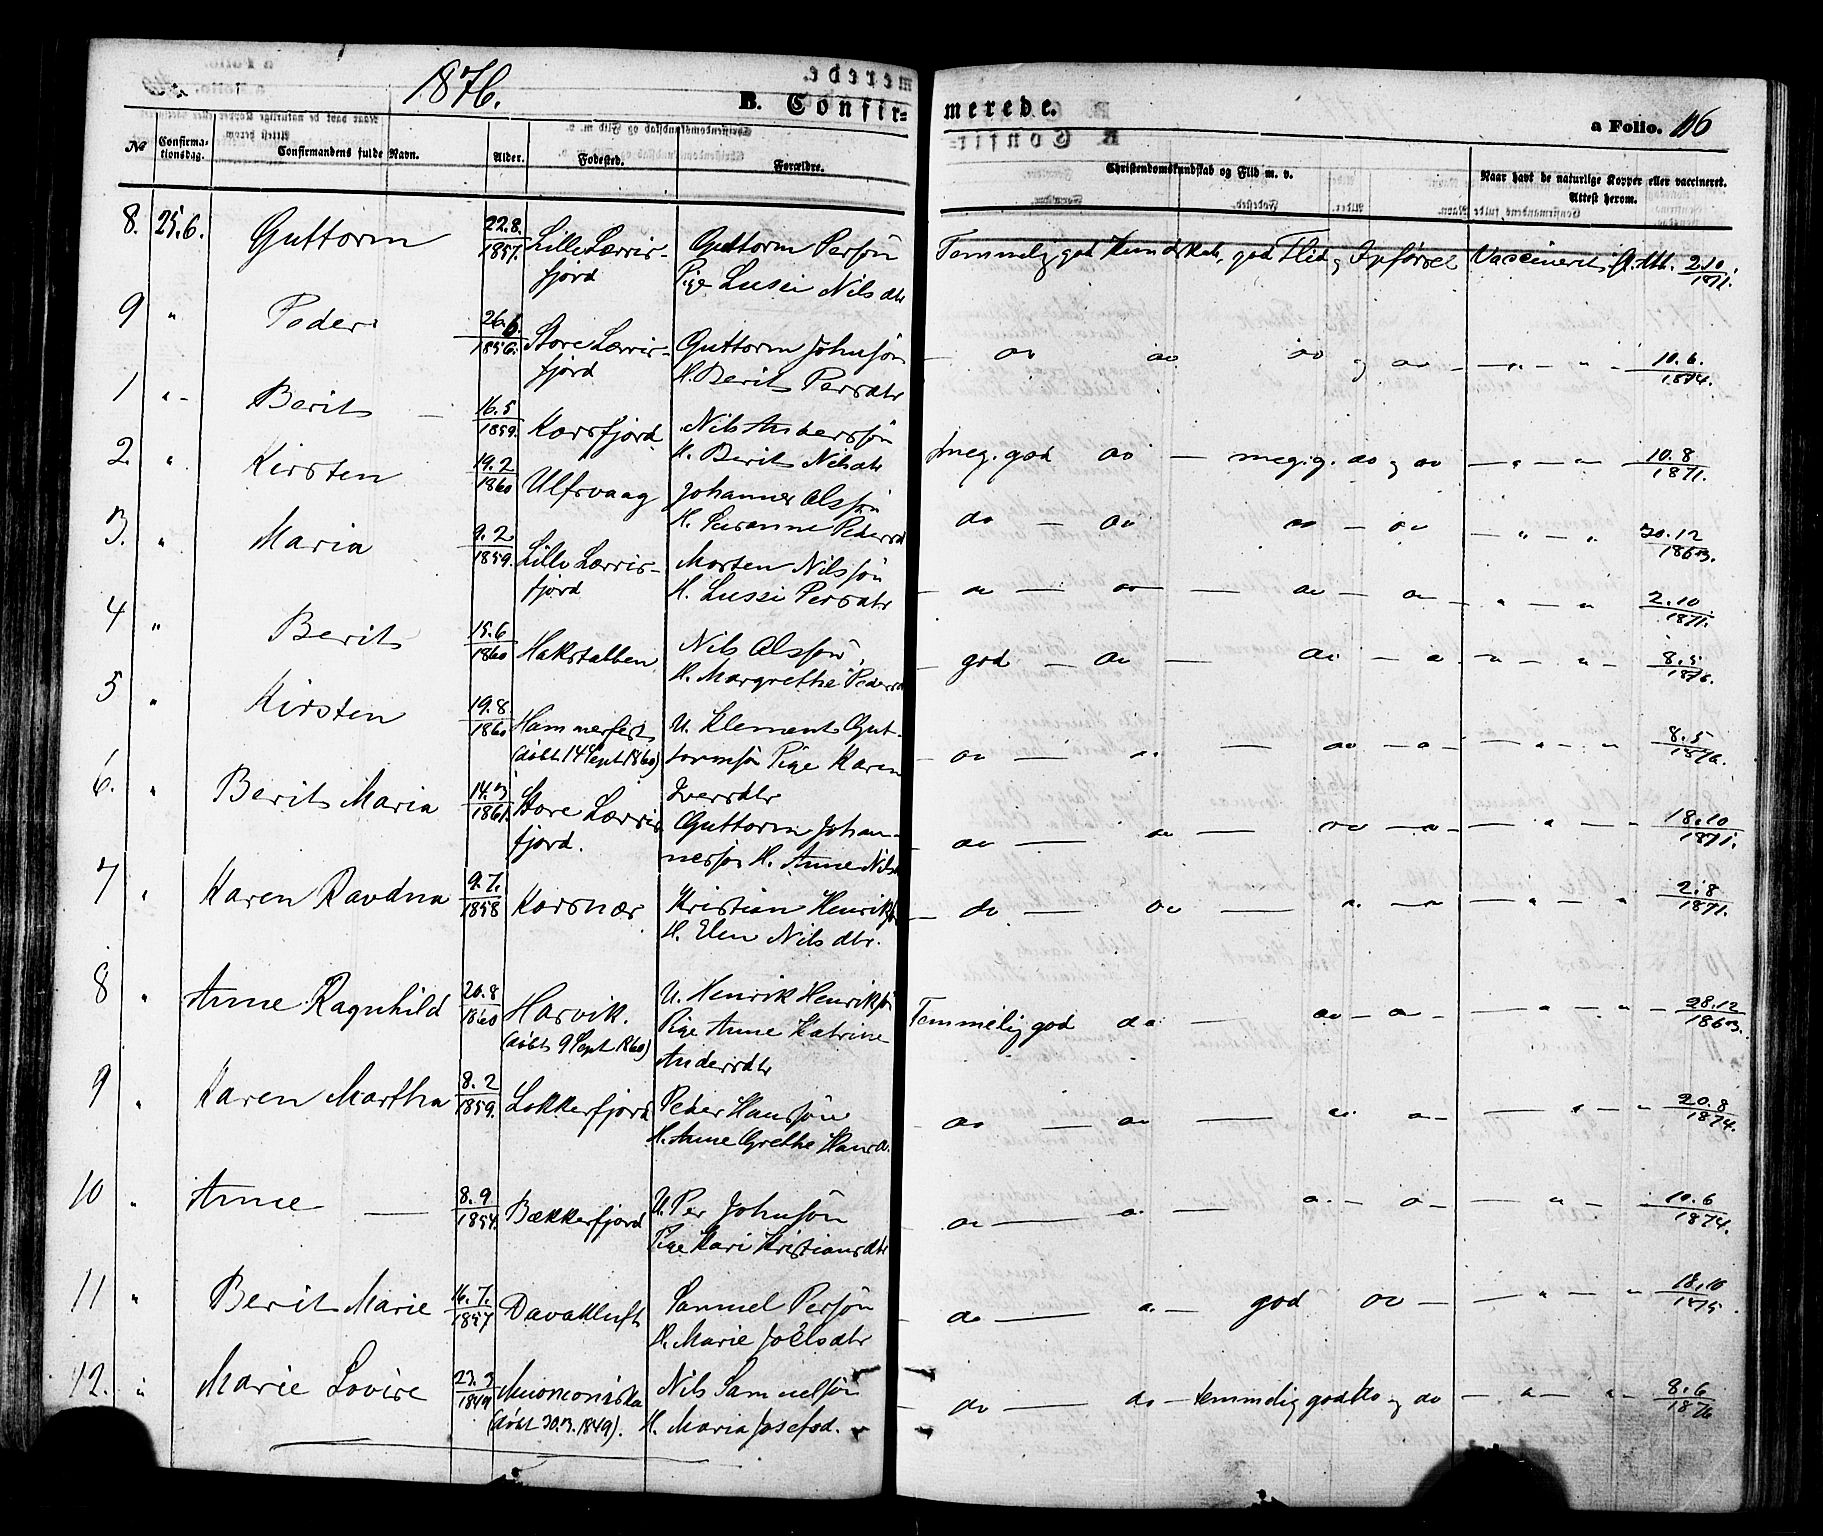 1876.
B. Confirmerede.
a Folio. 116
No
Confirmationsdag.
Confirmandens fulde Navn.
Alder.
Fødested.
Forældre.
Christendomskundskab og Flid m. v.
Naar havt de naturlige Kopper eller vaccineret. Attest herom.
8. 25.6. Guttorm 22.8. 1857. Lille Lerris- Guttorm Persøn Temmelig god Kundskab, god Flid og Opførsel Vaccineret, A. dtt. 2.10. 1871.
fjord Pige Lussi Nilsdtr
9 " Peder 26.6. 1856. Store Lerris- Guttorm Johnsøn — do do do og do — " " 10.6. 1874.
fjord H. Berit Persdtr
1 " Berit — 16.5 1859. Korsfjord Nils Anderssøn meg. god do — meg. g. do og do — " — " 10.8 1871.
H. Berit Nilsdtr
2. " Kirsten 19.2 1860 Ulfsvaag Johannes Olssøn do — do do — do — " — " 30.12 1863.
H. Susanne Pedersd
3. " Maria 9.2 1859. Lille Lerris- Morten Nilssøn — do — do — do — do — " — " 2.10. 1871.
fjord H. Lussi Persdtr
4 " Berit 15.6 1860 Hakstabben Nils Olssøn, — god — do — do — " — " 8.5 1876.
H. Margrethe Pedersd
5 " Kirsten 19.8. 1860 Hammerfest U. Klement Gut- — do — do — do — do — " — " 8.5 1876.
(døbt 14 Sept 1860) tormsøn Pige Karen
Iversdtr
6. " Berit Maria 14.3 1861. Store Lerris Guttorm Johan- do — do — do — do — " — " 18.10 1871.
fjord. nessøn H. Anne Nilsd
7 " Karen Ravdna 9.7. 1858 Korsnes Kristian Henriksøn — do — do — " — " 2.8 1871.
H. Elen Nilsdtr.
8 " Anne Ragnhild 20.8 1860 Harvik. U. Henrik Henriksøn Temmelig god do — do — do — " — " 28.12 1863.
(døbt 9 Sept 1860) Pige Anne Katrine
Andersdtr
9 " Karen Martha 8.2 1859. Lokkerfjord Peder Hansøn do — do — do do — " — " 20.8 1874.
H. Anne Grethe Hansd.
10 " Anne — 8.9 1854. Bekkerfjord U. Per Johnsøn — do — do do — do — " 10.6 1874.
Pige Kari Kristiansdtr
11 " Berit Marie 16.7. 1857 Davakluft Samuel Persøn — do — do — god do — " — " 18.10 1875.
H. Marie Joëlsdtr
12. " Marie Lovise 23.3 1849 Muonioniska Nils Samuelsøn — do — do — temmelig god do og do — " — " 8.6 1876
(døbt 30.3. 1849). H. Maria Josefsd.